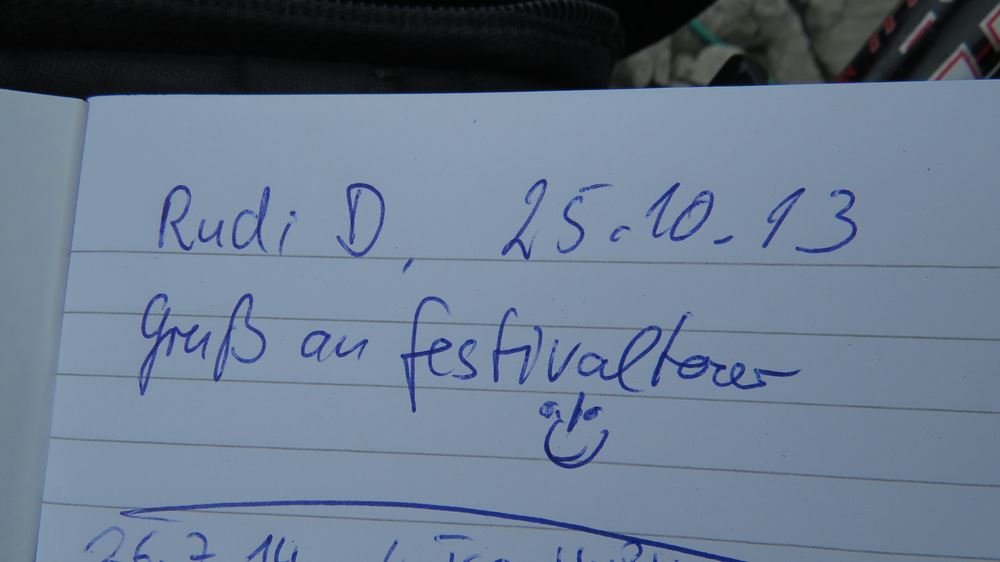 Rudi D, 25.10.13
Gruß an festivaltourer
26.7.14